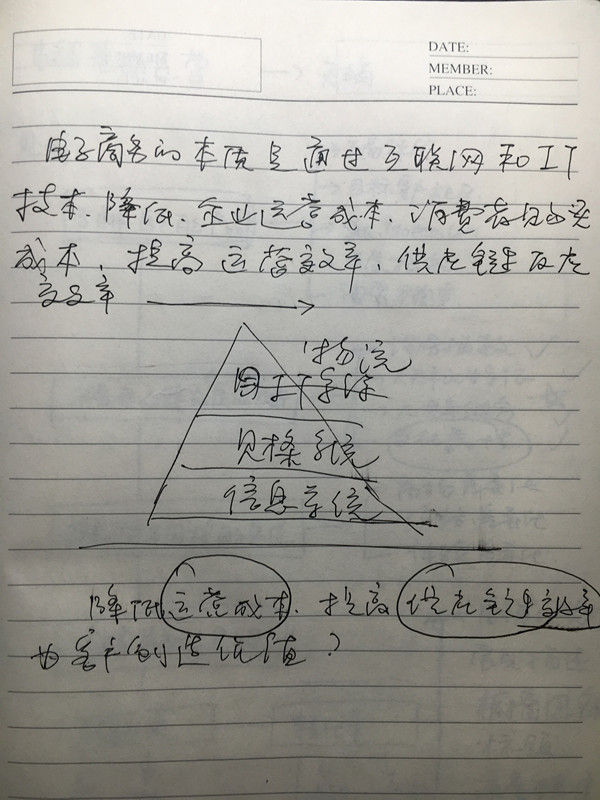 DATE:
MEMBER:
PLACE:
电子商务的本质是通过互联网和IT
技术、降低、企业运营成本、消费者购买
成本、提高运营效率、供应链反应
效率
物流
用IT手段
系统
信息系统
降低运营成本、提高供应链效率
为客户创造价值?